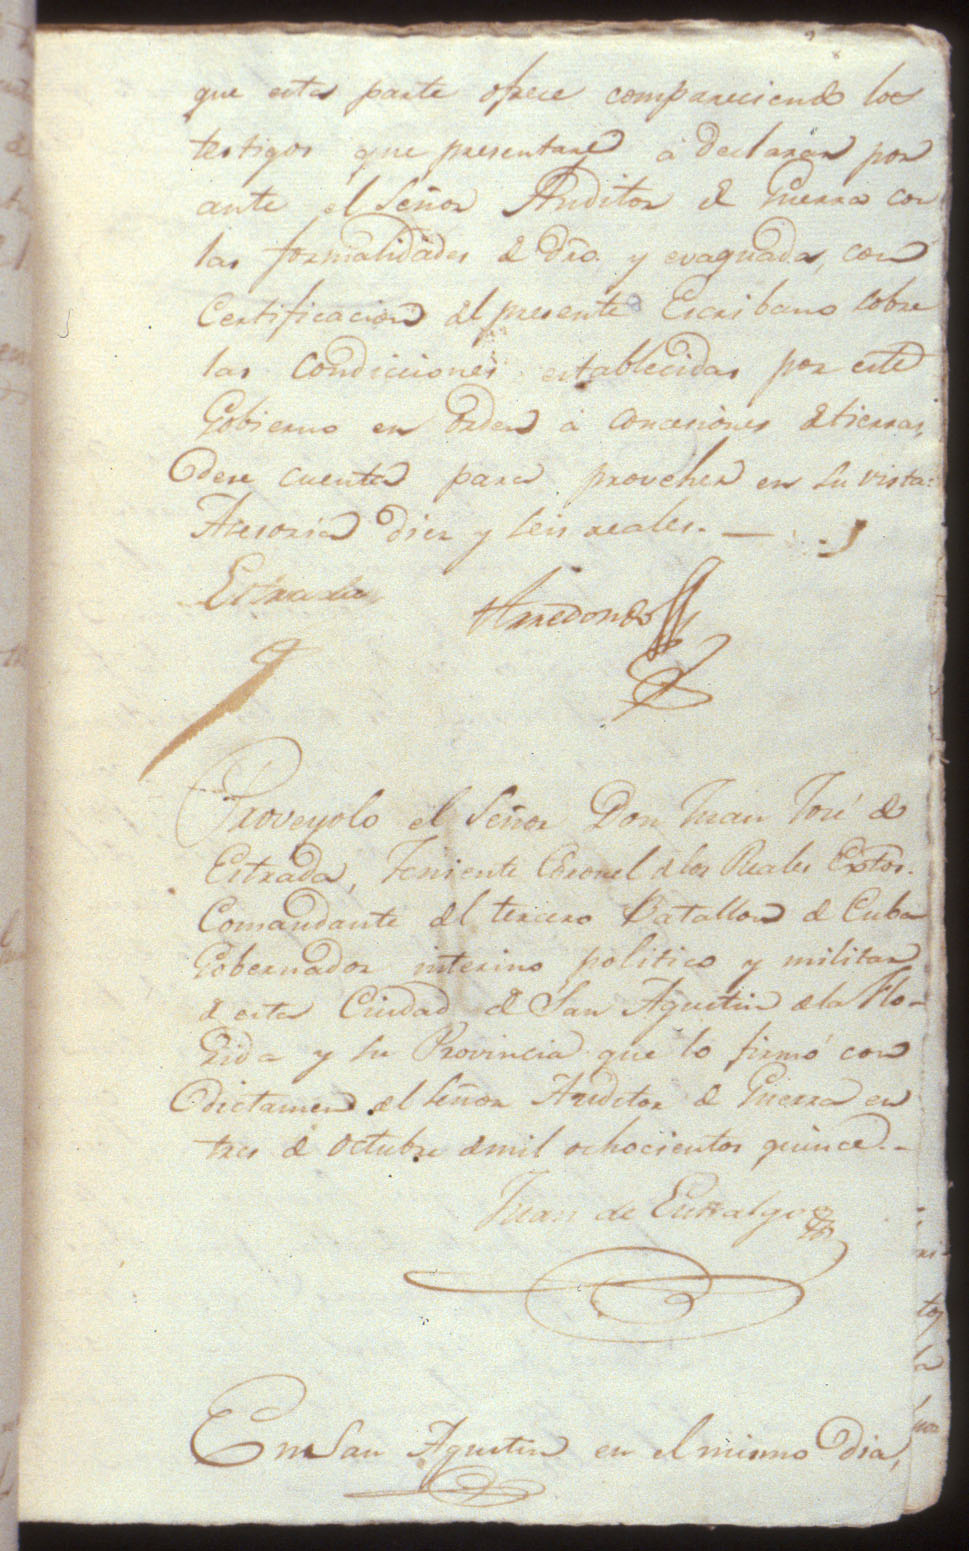 que esta parte ofrece compareciendo los
testigos que presentare á declarar por
ante el Señor Auditor de Guerra con
las formalidades de dro. y evaquada, con
Certificacion del presente Escribano sobre
las condiciones establecidas por este
Gobierno en orden á concesiones de tierras,
dese cuenta para proveher en su vista:
Asesoria diez y seis reales.—
Estrada
Arredondo
Proveyolo el Señor Don Juan José de
Estrada, Teniente Coronel de los Reales Extos.
Comandante del tercero Batallon de Cuba
Gobernador interino politico y militar
de esta Ciudad de San Agustin de la Flo-
rida y su Provincia que lo firmó con
dictamen del Señor Auditor de Guerra en
tres de Octubre de mil ochocientos quince.-
Juan de Entralgo
En San Agustin en el mismo dia,